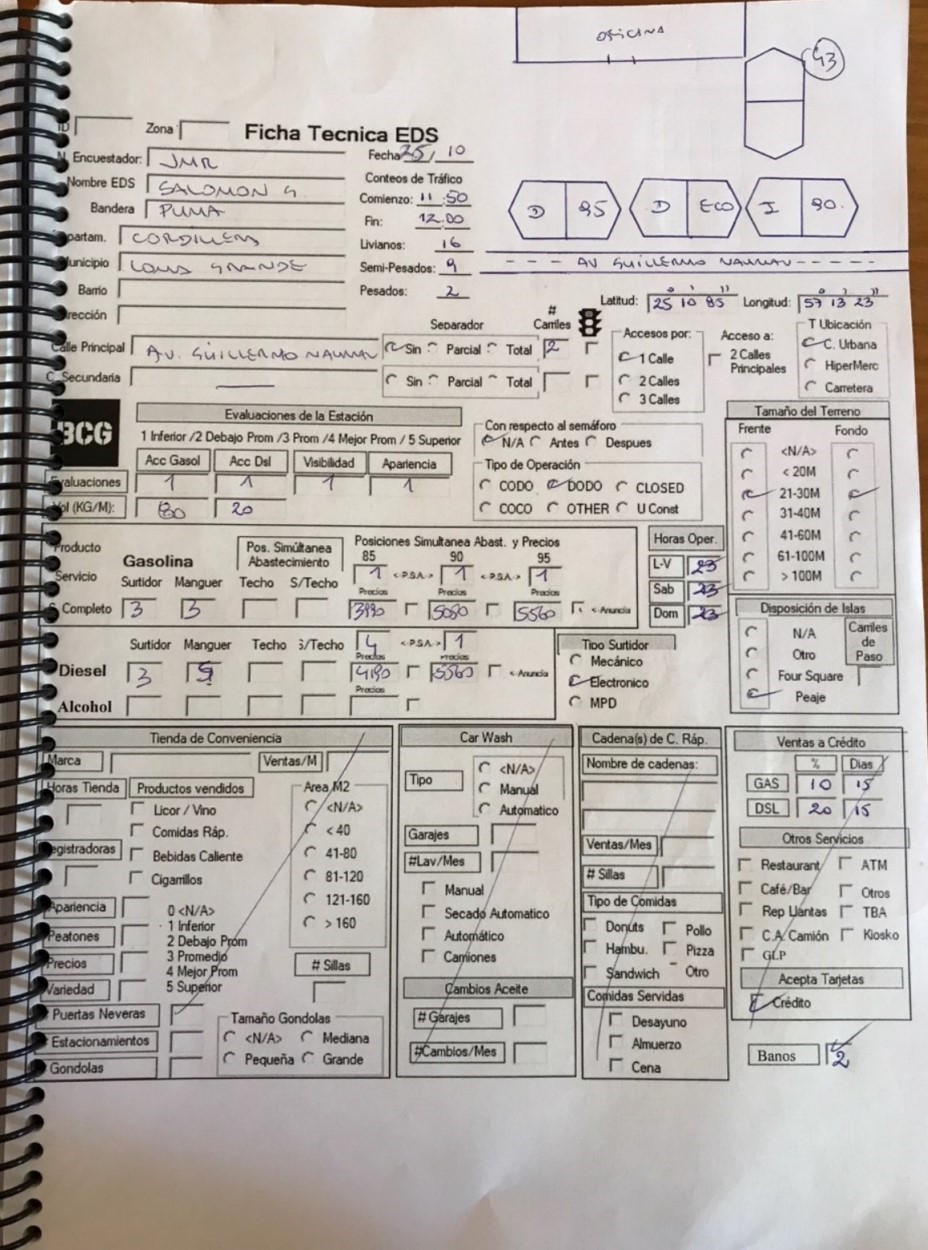 OFICINA
43
ID
Zona
Ficha Tecnica EDS
Encuestador: JMR
Fecha 25/10
Nombre EDS SALOMON G
Conteos de Tráfico
Bandera PUMA
Comienzo: 11:50
D 95 D ECO I 90.
Fin: 12.00
partam. CORDILLERA
Livianos: 16
unicipio LOMA GRANDE
Semi-Pesados: 9
AV GUILLERMO NAUMAN
Barrio
Pesados: 2
Latitud: 25 10 85 Longitud: 57 13 23
rección
Separador # Carriles
Accesos por: Acceso a: T Ubicación
Calle Principal AV. GUILLERMO NAUMAN Sin Parcial Total 2
1 Calle 2 Calles Principales C. Urbana
2 Calles HiperMerc
C. Secundaria Sin Parcial Total
3 Calles Carretera
BCG
Evaluaciones de la Estación
1 Inferior /2 Debajo Prom /3 Prom /4 Mejor Prom / 5 Superior
Acc Gasol Acc Dsl Visibilidad Apariencia
Evaluaciones 1 1 1 1
Vol (KG/M): 80 20
Con respecto al semáforo
N/A Antes Despues
Tipo de Operación
CODO DODO CLOSED
COCO OTHER U Const
Tamaño del Terreno
Frente Fondo
<N/A>
< 20M
21-30M
31-40M
41-60M
61-100M
> 100M
Producto
Gasolina
Pos. Simúltanea Abastecimiento
Posiciones Simultanea Abast. y Precios
85 90 95
1 <P.S.A> 1 <P.S.A> 1
Servicio
Surtidor Manguer Techo S/Techo
Precios Precios Precios
S Completo 3 3 3990 5080 5560 <-Anuncia
Horas Oper.
L-V 23
Sab 23
Dom 23
Surtidor Manguer Techo S/Techo 4 <P.S.A> 1
Precios Precios
Diesel 3 5 4190 5560 <-Anuncia
Precios
Alcohol
Tipo Surtidor
Mecánico
Electronico
MPD
Disposición de Islas
N/A
Otro
Four Square
Peaje
Carriles de Paso
Tienda de Conveniencia
Marca Ventas/M
Horas Tienda Productos vendidos Area M2
Licor / Vino <N/A>
Comidas Ráp. < 40
egistradoras Bebidas Caliente 41-80
Cigarrillos 81-120
121-160
> 160
Apariencia 0 <N/A>
1 Inferior
Peatones 2 Debajo Prom
Precios 3 Promedio
4 Mejor Prom
Variedad 5 Superior
# Sillas
Puertas Neveras
Estacionamientos
Gondolas
Tamaño Gondolas
<N/A> Mediana
Pequeña Grande
Car Wash
Tipo
<N/A>
Manual
Automatico
Garajes
#Lav/Mes
Manual
Secado Automatico
Automático
Camiones
Cambios Aceite
# Garajes
#Cambios/Mes
Cadena(s) de C. Ráp.
Nombre de cadenas:
Ventas/Mes
# Sillas
Tipo de Comidas
Donuts Pollo
Hambu. Pizza
Sandwich Otro
Comidas Servidas
Desayuno
Almuerzo
Cena
Ventas a Crédito
% Dias
GAS 10 15
DSL 20 15
Otros Servicios
Restaurant ATM
Café/Bar Otros
Rep Llantas TBA
C.A. Camión Kiosko
GLP
Acepta Tarjetas
Crédito
Banos 2